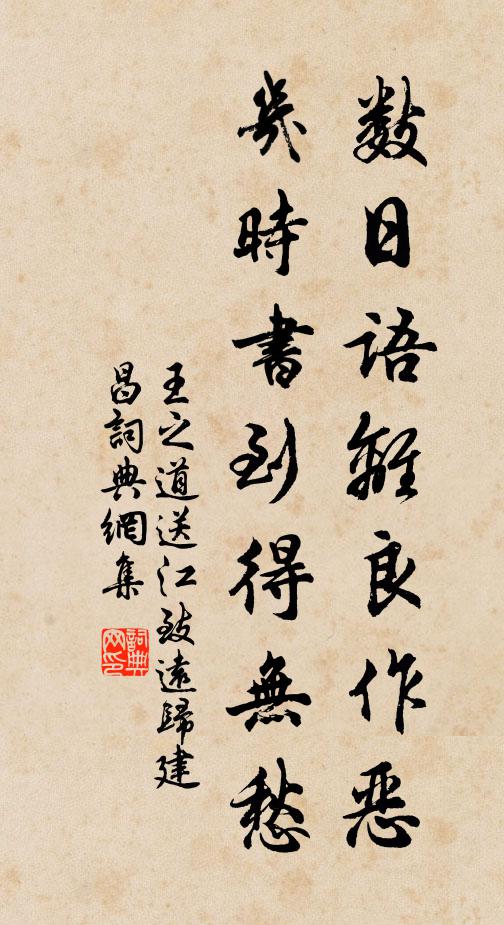 數日語離良作惡
幾時書到得無愁
王之道送江致遠歸建
昌詞典網集
詞典
网印